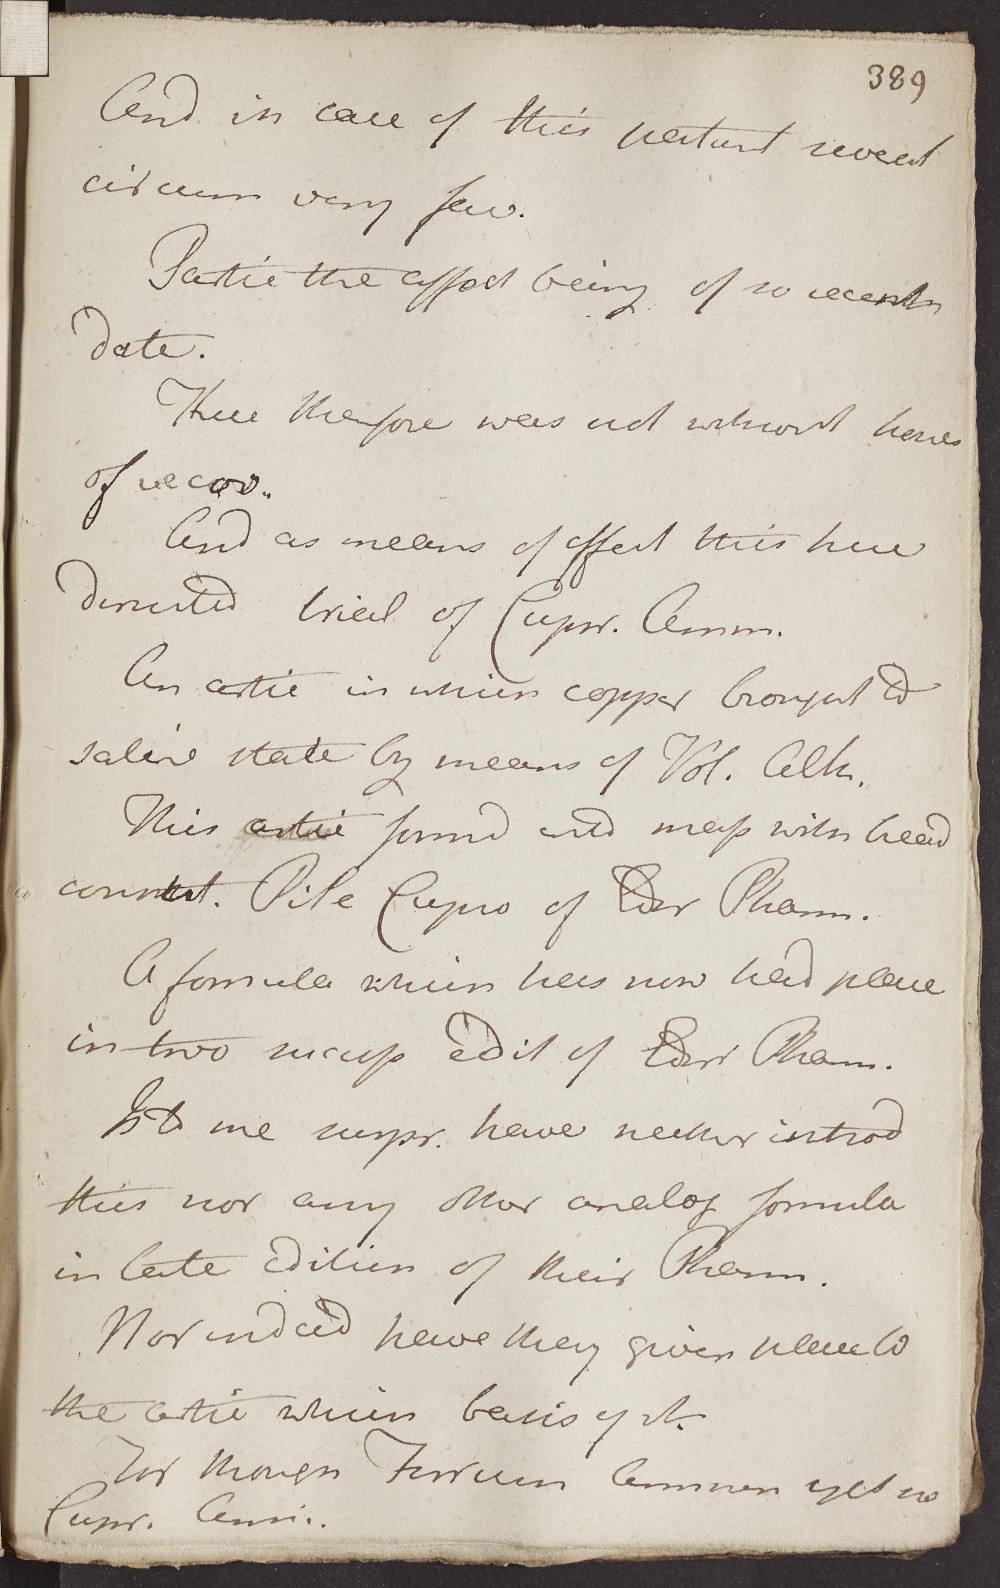 389
And in case of this patient several
circum very few.
Partic the affect being of so recent
date.
Here therefore was not without hopes
of recov.
And as means of effect this here
directed trial of Cupr. Amm.
An artic in which copper brought to
saline state by means of Vol. Alk.
This artic formd into mass with bread
constit. Pile Cupro of Edin Pharm.
A formula which has now had place
in two success edit of Edin Pharm.
to me surpr. have neither introd
this nor any other analog formula
in late edition of their Pharm.
Nor indeed have they given place to
the artic which basis of it.
For though Ferrum Ammon yet no
Cupr. Amm.